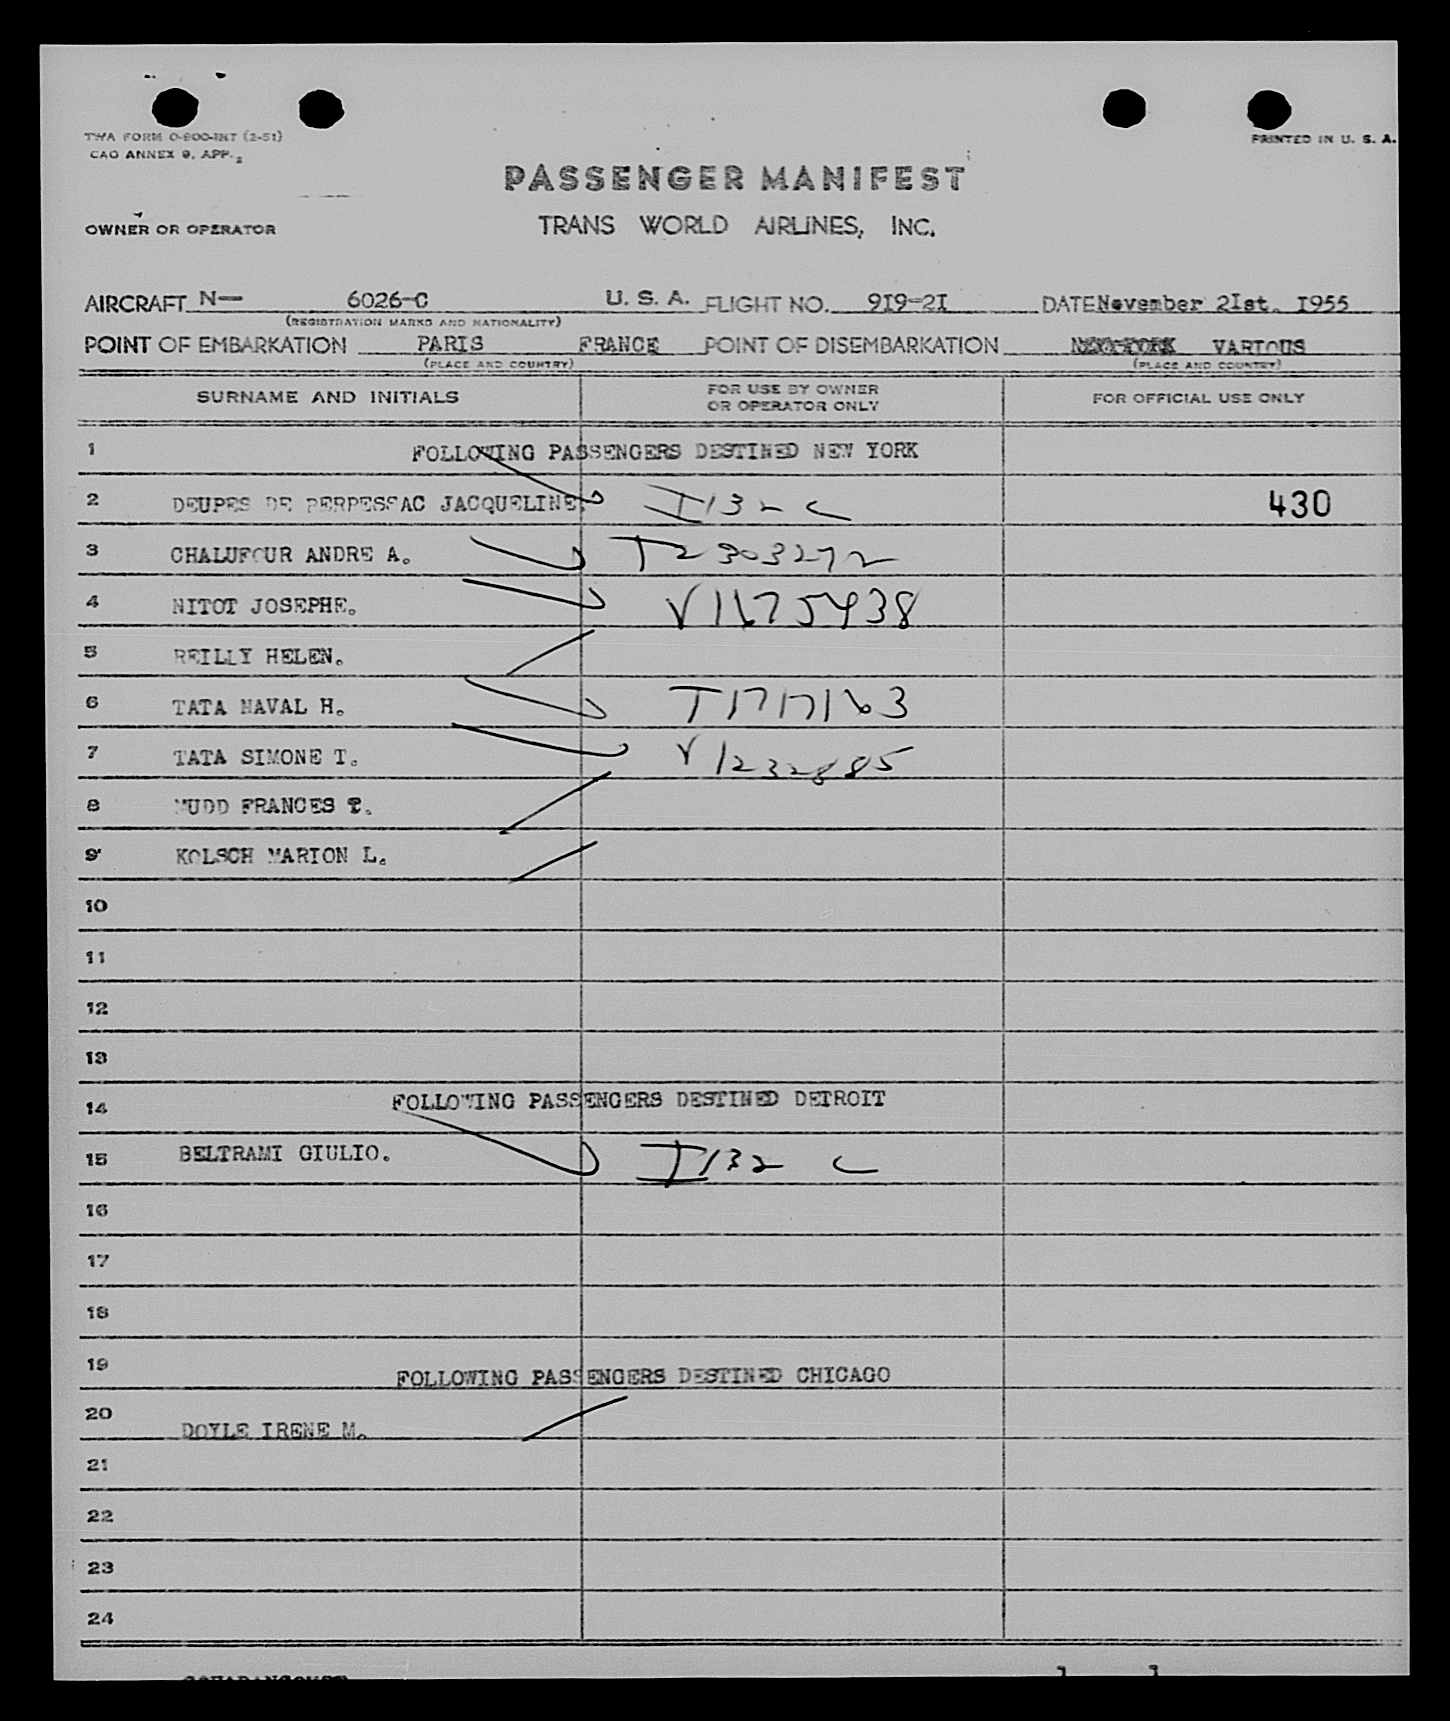 TWA FORM O-800-INT (2-51)
CAO ANNEX 9, APP. 2
PRINTED IN U. S. A.
PASSENGER MANIFEST
OWNER OR OPERATOR
TRANS WORLD AIRLINES, INC.
AIRCRAFT N— 6026-C U. S. A. FLIGHT NO. 9I9-2I DATE November 2Ist. I955
(REGISTRATION MARKS AND NATIONALITY)
POINT OF EMBARKATION PARIS FRANCE POINT OF DISEMBARKATION NEW YORK VARIOUS
(PLACE AND COUNTRY) (PLACE AND COUNTRY)
SURNAME AND INITIALS FOR USE BY OWNER OR OPERATOR ONLY FOR OFFICIAL USE ONLY
1 FOLLOWING PASSENGERS DESTINED NEW YORK
2 DEUPES DE PERPESSAC JACQUELINE. I132 C 430
3 CHALUFOUR ANDRE A. T2303272
4 NITOT JOSEPHE. V1175438
5 REILLY HELEN.
6 TATA NAVAL H. T1717163
7 TATA SIMONE T. V1232885
8 MUDD FRANCES T.
9 KOLSCH MARION L.
10
11
12
13
14 FOLLOWING PASSENGERS DESTINED DETROIT
15 BELTRAMI GIULIO. I132 C
16
17
18
19 FOLLOWING PASSENGERS DESTINED CHICAGO
20 DOYLE IRENE M.
21
22
23
24